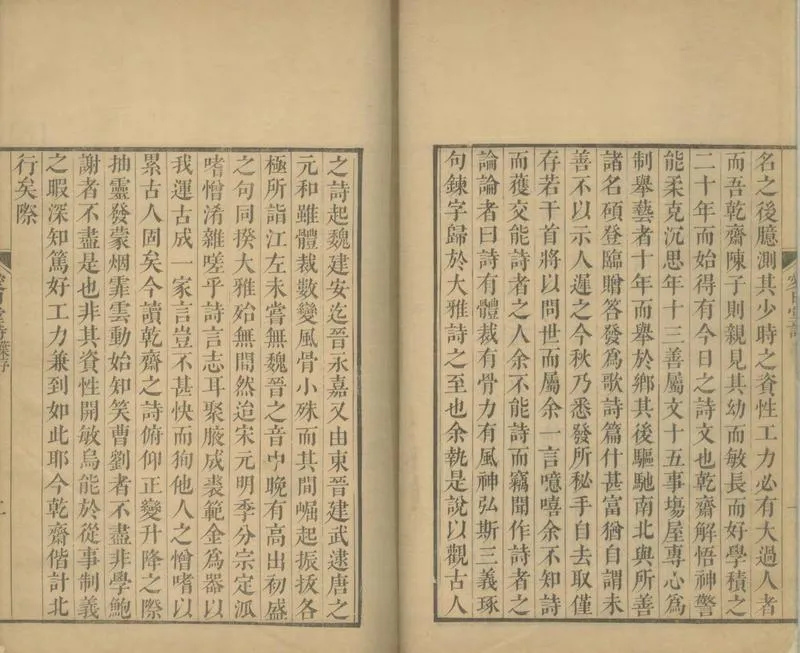 名之後臆測其少時之資性工力必有大過人者
而吾乾齋陳子則親見其幼而敏長而好學積之
二十年而始得有今日之詩文也乾齋解悟神警
能柔克沉思年十三善屬文十五事塲屋專心爲
制舉藝者十年而舉於鄉其後驅馳南北與所善
諸名碩登臨贈答發爲歌詩篇什甚富猶自謂未
善不以示人遲之今秋乃悉發所秘手自去取僅
存若干首將以問世而屬余一言噫嘻余不知詩
而獲交能詩者之人余不能詩而竊聞作詩者之
論論者曰詩有體裁有骨力有風神弘斯三義琢
句鍊字歸於大雅詩之至也余執是說以觀古人
之詩起魏建安迄晉永嘉又由東晉建武逮唐之
元和雖體裁數變風骨小殊而其間崛起振拔各
極所詣江左未嘗無魏晉之音中晚有高出初盛
之句同揆大雅始無間然迨宋元明季分宗定派
嗜憎淆雜嗟乎詩言志耳聚腋成裘範金爲器以
我運古成一家言豈不甚快而狥他人之憎嗜以
累古人固矣今讀乾齋之詩俯仰正變升降之際
抽靈發蒙烟霏雲動始知笑曹劉者不盡非學鮑
謝者不盡是也非其資性開敏烏能於從事制義
之暇深知篤好工力兼到如此耶今乾齋偕計北
行矣際